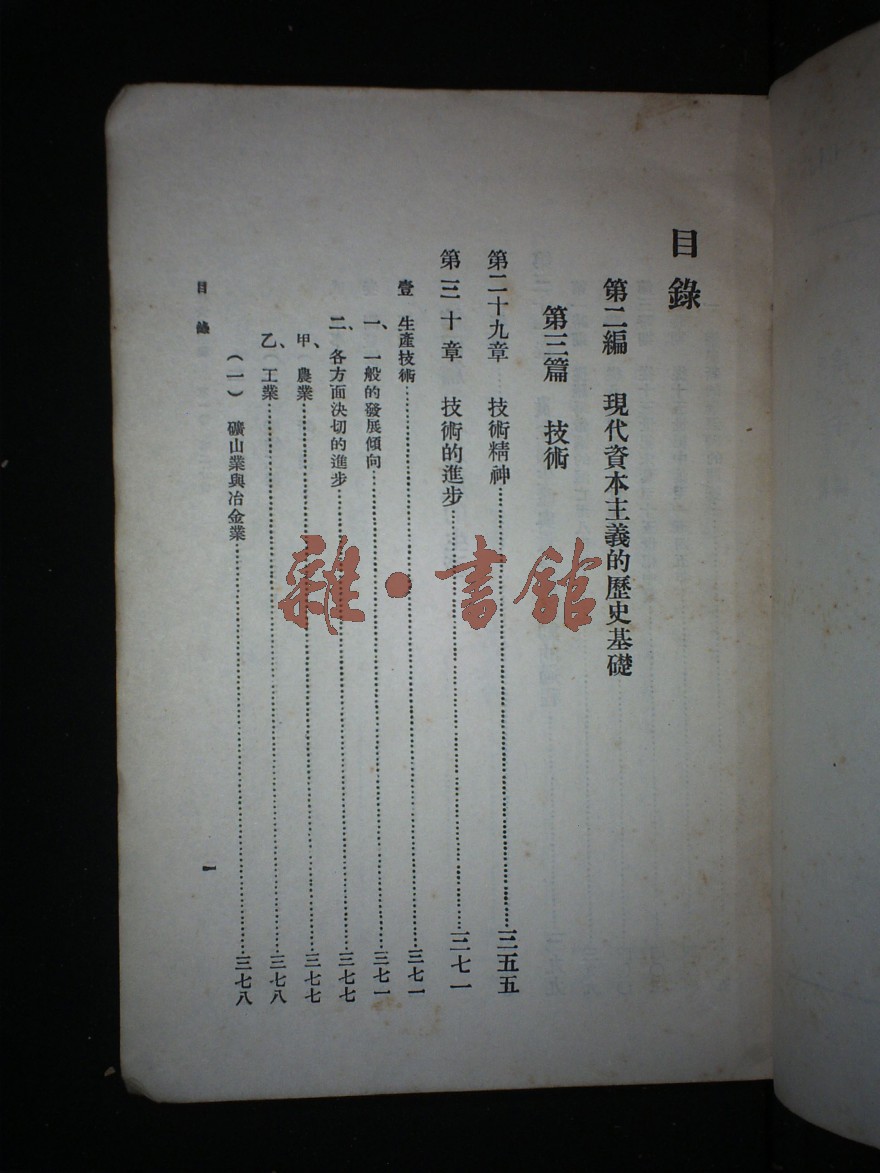 目錄
第二編 現代資本主義的歷史基礎
第三篇 技術
第二十九章 技術精神……三五五
第三十章 技術的進步……三七一
壹 生產技術……三七一
一、一般的發展傾向……三七一
二、各方面決切的進步……三七七
甲、農業……三七七
乙、工業……三七八
（一）礦山業與冶金業……三七八
目錄
一
雜·書館